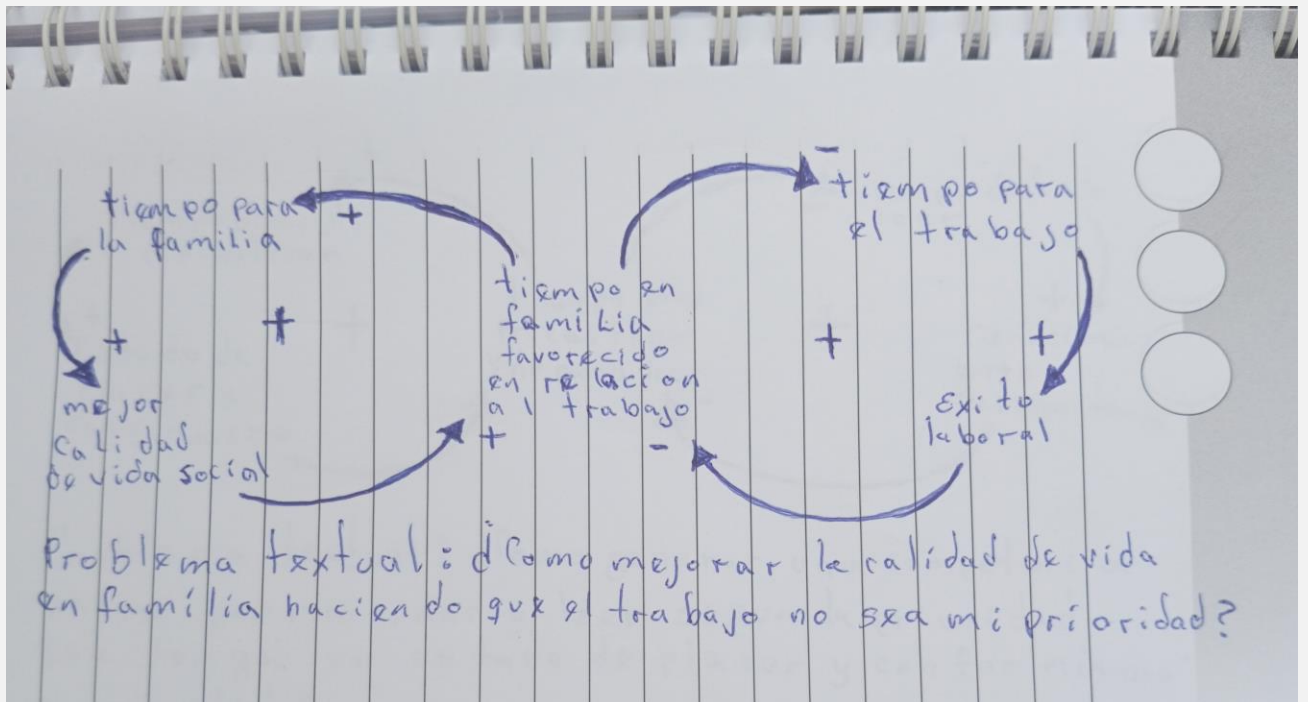 tiempo para
la familia
+
+
+
mejor
calidad
de vida social
tiempo en
familia
favorecido
en relacion
al trabajo
+
-
-
tiempo para
el trabajo
+
+
éxito
laboral
Problema textual: ¿Como mejorar la calidad de vida
en família haciendo que el trabajo no sea mi prioridad?